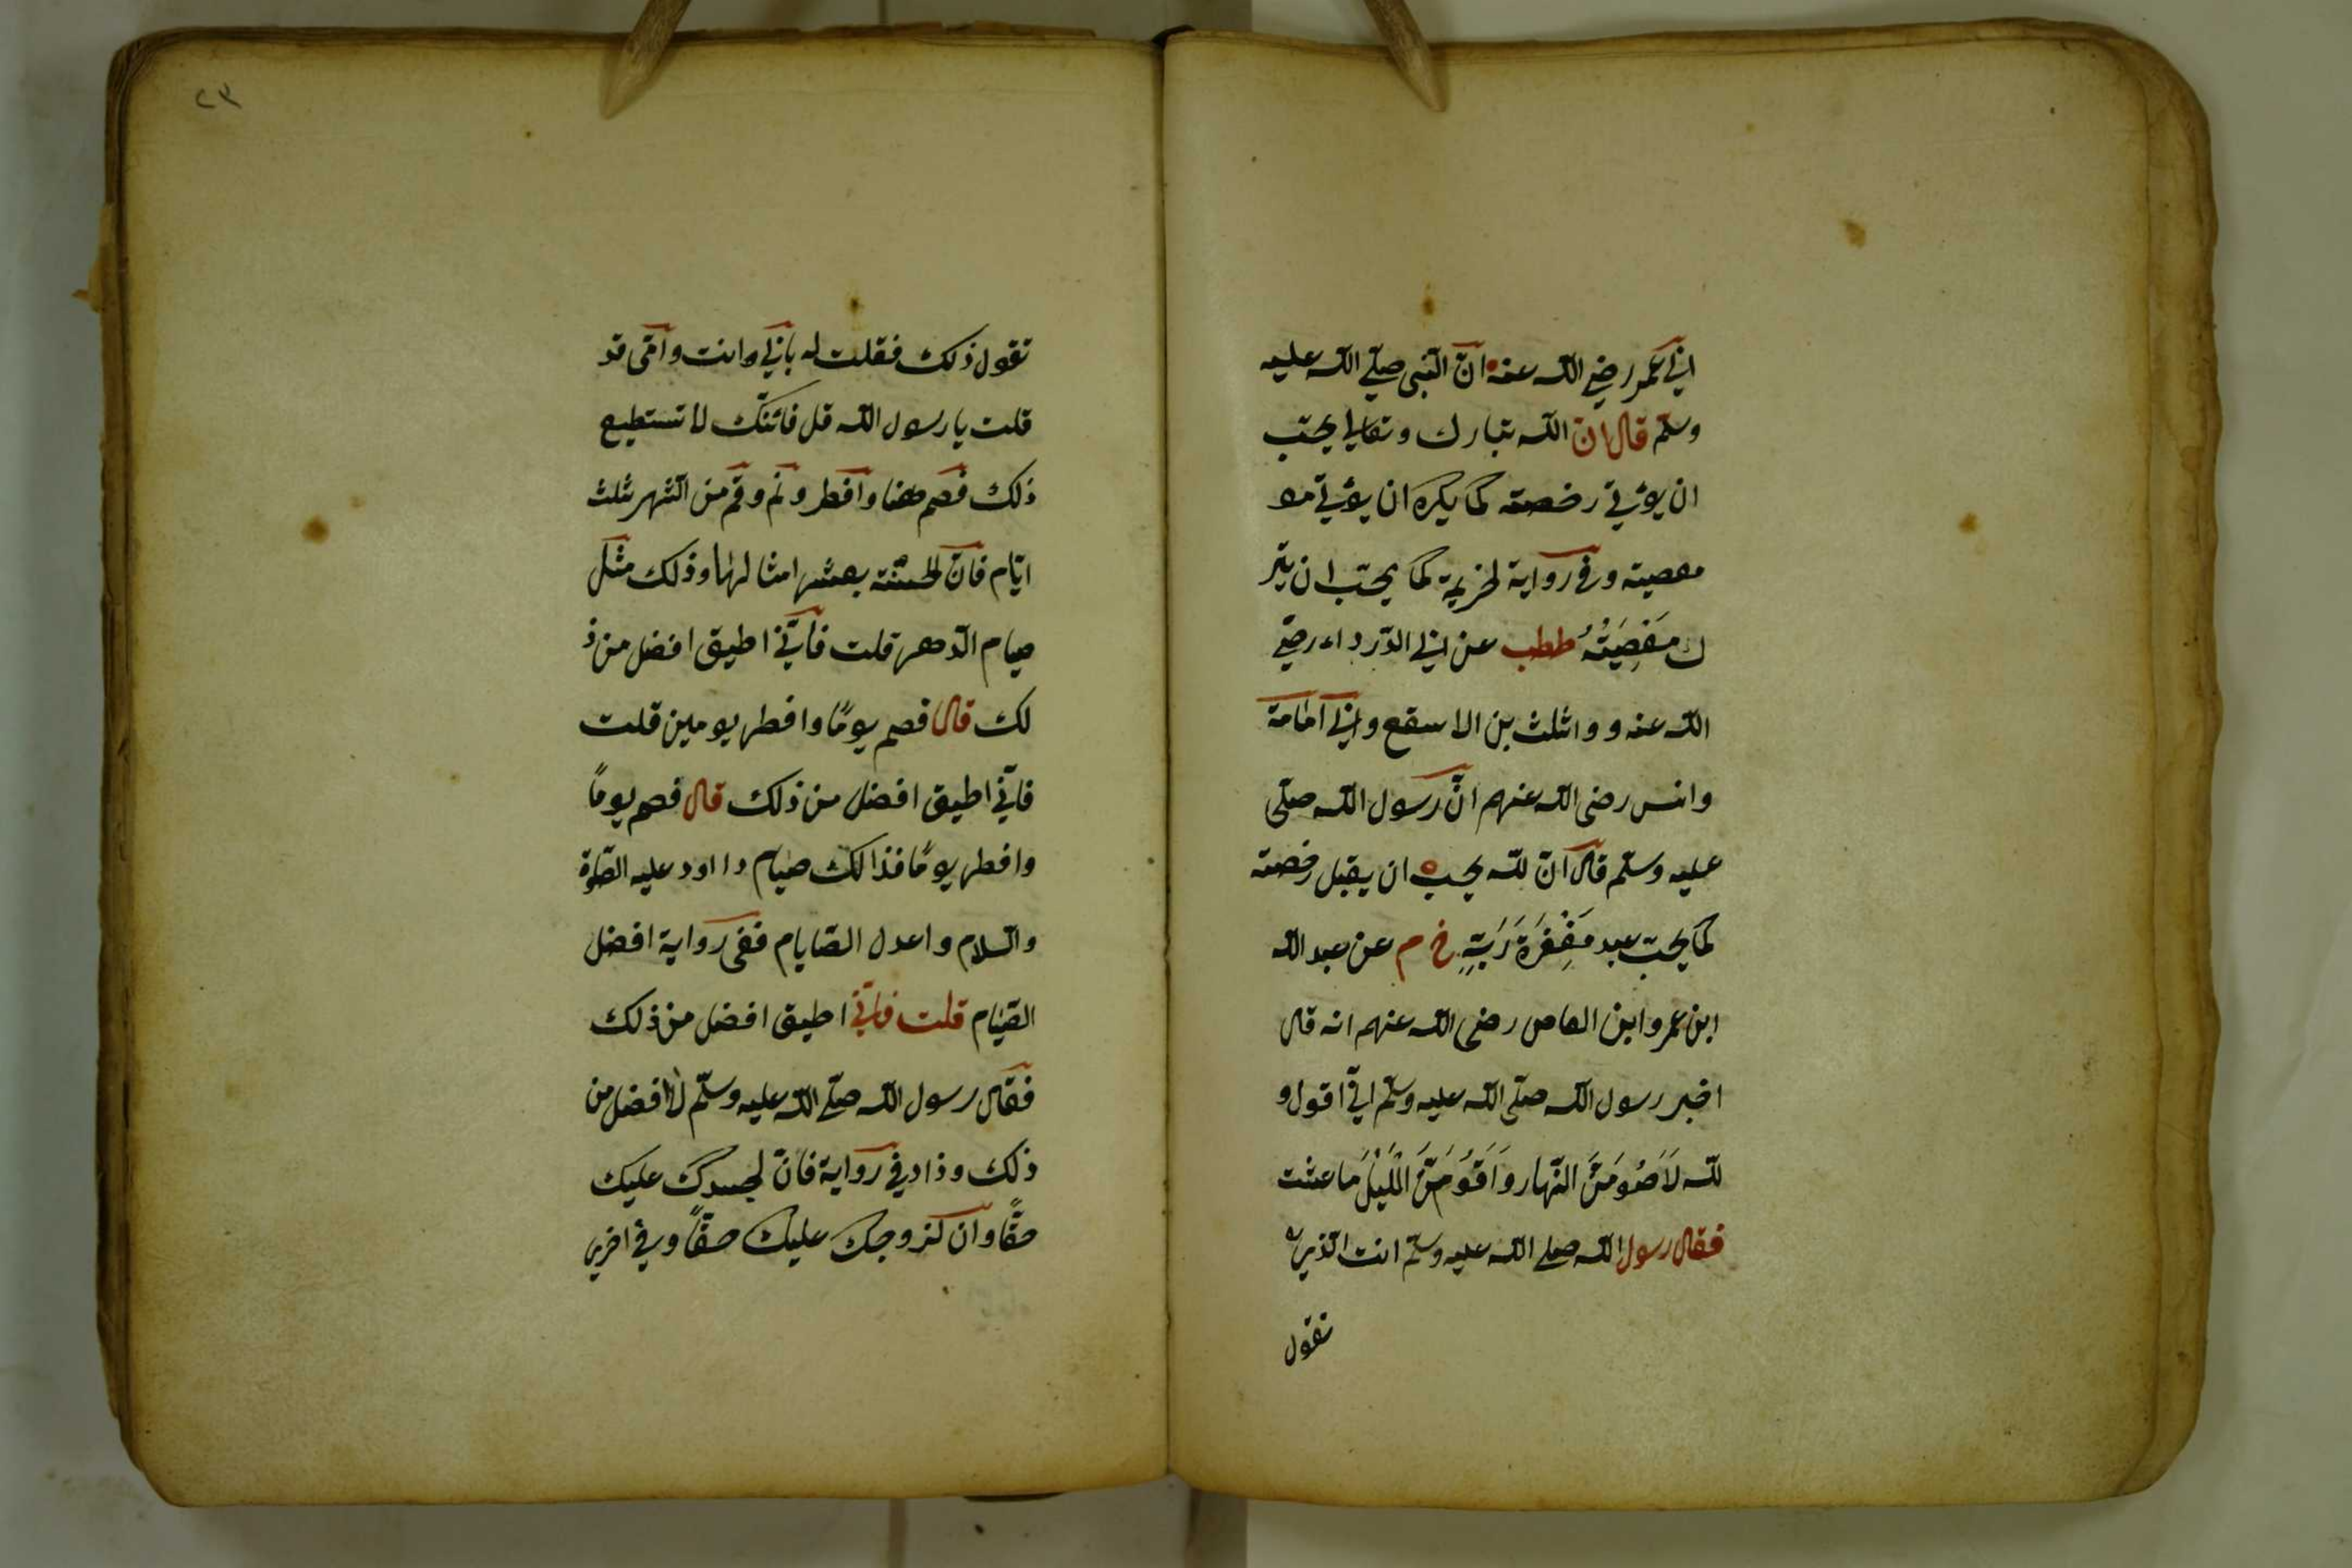 ابي عمر رضي الله عنه ان النبي صلي الله عليه
وسلم قال ان الله تبارك وتعالي يحب
ان يؤتي رخصته كما يكره ان يؤتي مع
معصيته وفي رواية لخزيمة كما يحب ان يتر
ك مَعْصِيَتُهُ ططب عن ابي الدرداء رضي
الله عنه وواثلث بن الاسقع وابي امامة
وانس رضي الله عنهم ان رسول الله صلى
عليه وسلم قال ان لله يحب ان يقبل رخصته
كما يحب عبد مَغْفِرَةَ رَبِّهِ خ م عن عبد الله
ابن عمرو ابن العاص رضى الله عنهم انه قال
اخبر رسول الله صلى الله عليه وسلم اني اقول و
لله لَاَصُومَنَّ النهار وَاَقُومَنَّ الْلَيْلَ ما عشت
فقال رسول الله صلي الله عليه وسلم انت الذي
تقول
٢٣
تقول ذلك فقلت له بابي وانت وامي قد
قلت يا رسول الله قل فائنك لا تستطيع
ذلك فصم وافطر ونم وقم من الشهر ثلث
ايام فان لحسنة بعشر امثالها وذلك مثل
صيام الدهر قلت فاني اطيق افضل من ذ
لك قال فصم يومًا وافطر يومين قلت
فاني اطيق افضل من ذلك قال فصم يومًا
وافطر يومًا فذالك صيام دا اود عليه الصلوة
والسلام واعدل الصايام ففى رواية افضل
الصيام قلت فاني اطيق افضل من ذلك
فقال رسول الله صلي الله عليه وسلم لا افضل من
ذلك وذاد في رواية فان لجسدك عليك
حقًا وان لزوجك عليك حقًا وفي اخري